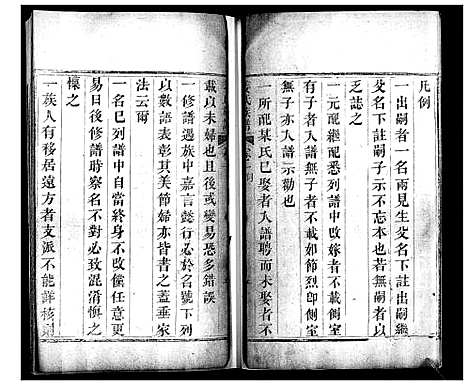 凡例
一出嗣者一名兩見生父名下註出嗣繼
父名下註嗣子示不忘本也若無嗣者以
乏誌之
一元配繼配悉列譜中改嫁者不載側室
有子者入譜無子者不載如節烈卽側室
無子亦入譜示勸也
一所配某氏已娶者入譜聘而未娶者不
載以未婦也且後或變易恐多錯誤
一修譜遇族中嘉言懿行名號下列
以數語表彰其美節婦亦皆書之蓋垂家
法云爾
一名已列譜中自當終身不改儻任意更
易日後修譜時察名不對必致混淆慎之
懍之
一族人有移居遠方者支派不能詳核